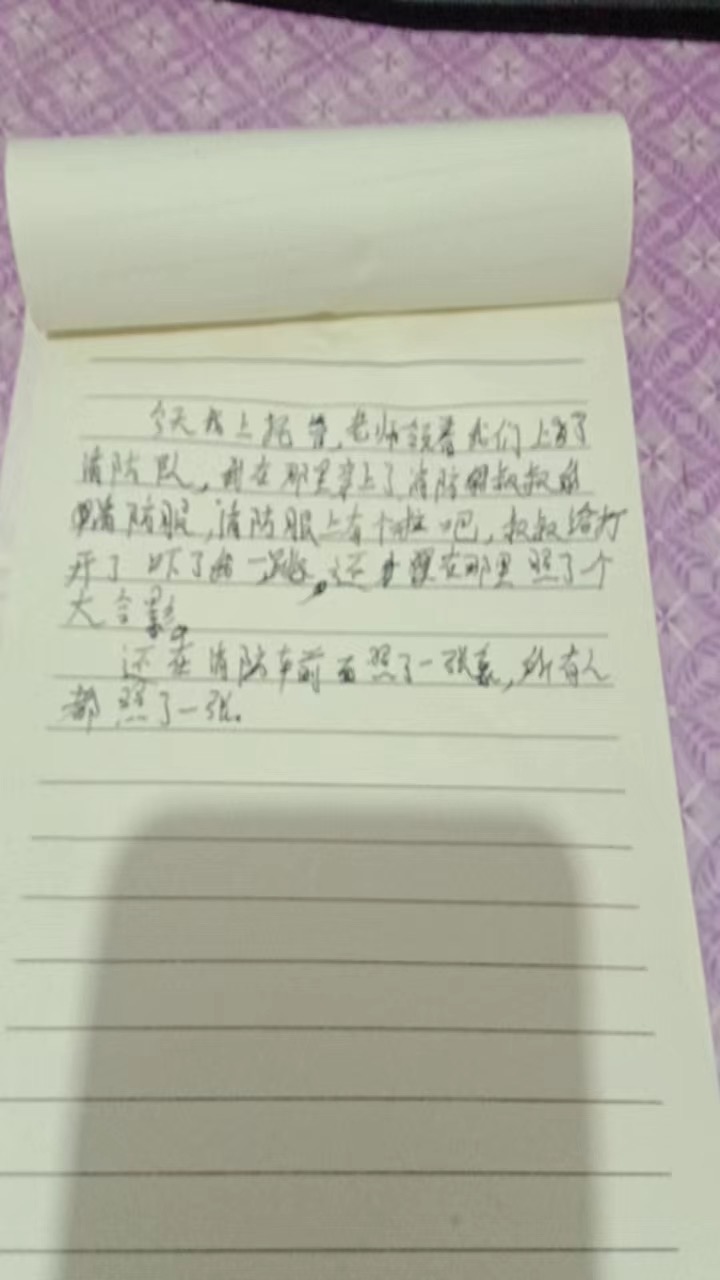 今天我上托管,老师领着我们上了
消防队,我在那里穿上了消防叔叔
消防服,消防服上有个喇吧,叔叔给打
开了吓了我一跳,还在那里照了个
大合影
还在消防车前面照了一张,所有人
都照了一张。